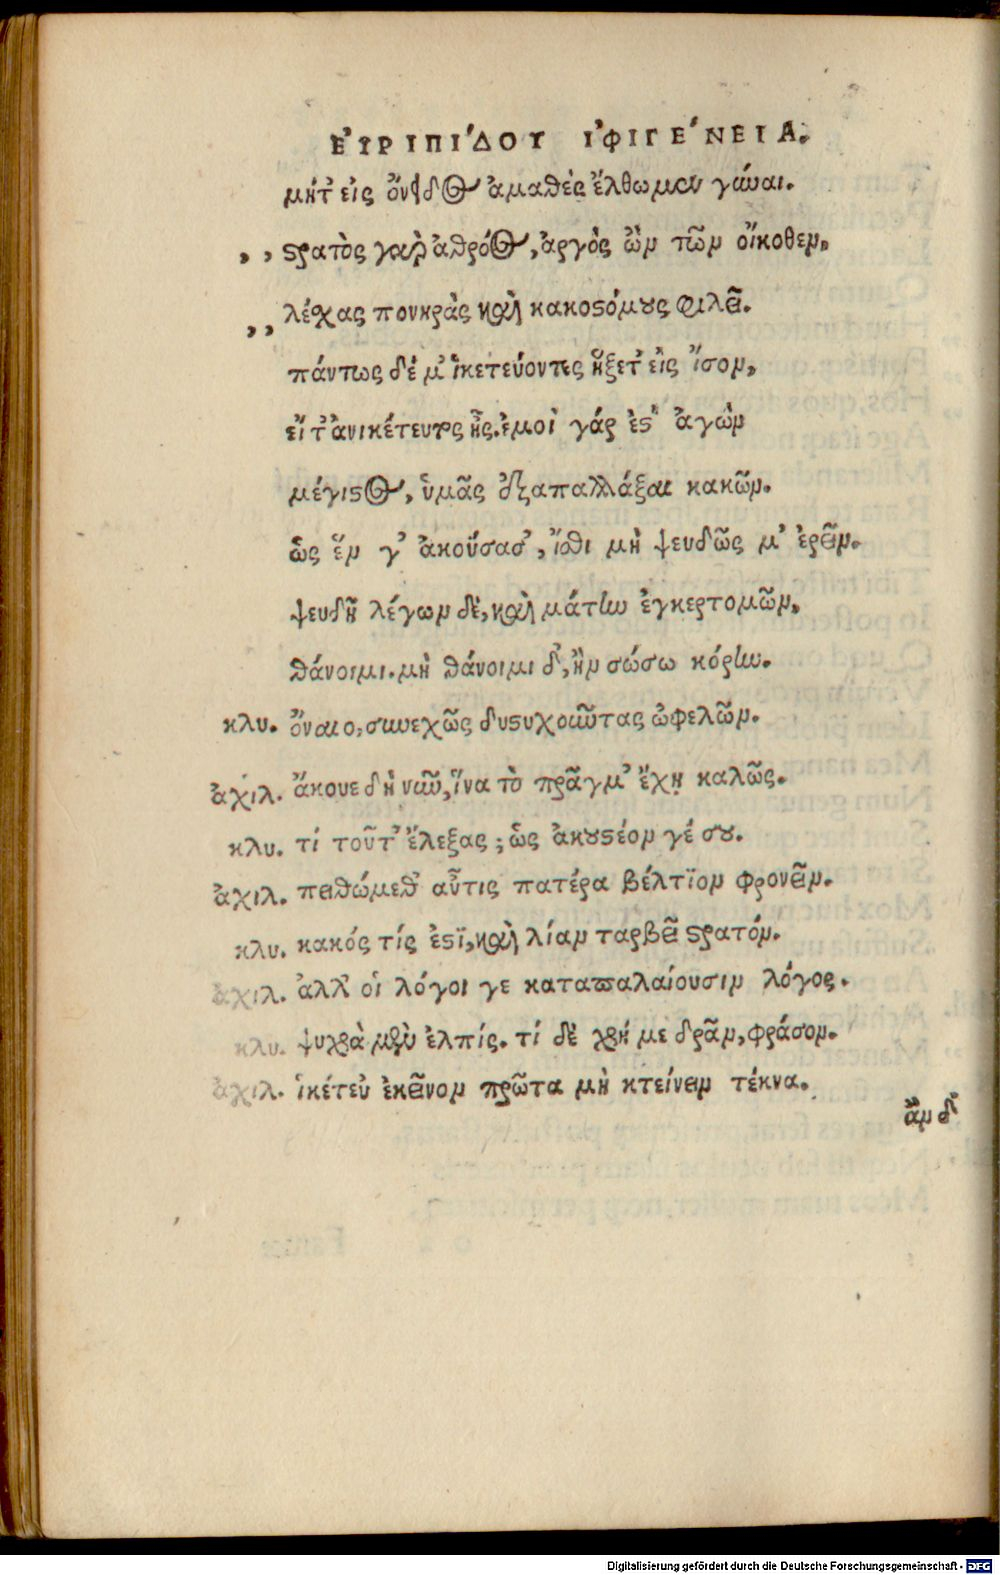 ΕὐΡΙΠΙ´ΔΟΥ ἸΦΙΓΕ´ΝΕΙΑ.
μήτ' εἰς ὄνειδος ἀμαθὲς ἔλθωμεν γύναι.
,, στρατὸς γὰρ ἀθρόος, ἀργὸς ὢν τῶν οἴκοθεν,
,, λέσχας πονηρὰς καὶ κακοστόμους φιλεῖ.
πάντως δέ μ' ἱκετεύοντες ἥξετ' εἰς ἴσον,
εἴ τ' ἀνικέτευτος ᾖς. ἐμοὶ γάρ ἐστ' ἀγὼν
μέγιστος, ὑμᾶς ἐξαπαλλάξαι κακῶν.
ὡς ἕν γ' ἀκούσασ', ἴσθι μὴ ψευδῶς μ' ἐρεῖν.
ψευδῆ λέγων δὲ, καὶ μάτην ἐγκερτομῶν,
θάνοιμι. μὴ θάνοιμι δ', ἢν σώσω κόρην.
κλυ. ὄναιο, συνεχῶς δυστυχοῦντας ὠφελῶν.
ἀχιλ. ἄκουε δὴ νῦν, ἵνα τὸ πρᾶγμ' ἔχῃ καλῶς.
κλυ. τί τοῦτ' ἔλεξας; ὡς ἀκουστέον γέ σου.
ἀχιλ. πειθώμεθ' αὖτις πατέρα βέλτϊον φρονεῖν.
κλυ. κακός τίς ἐστϊ, καὶ λίαν ταρβεῖ στρατόν.
ἀχιλ. ἀλλ' οἱ λόγοι γε καταπαλαίουσιν λόγος.
κλυ. ψυχρὰ μὲν ἐλπίς. τί δὲ χρή με δρᾶν, φράσον.
ἀχιλ. ἱκέτευ' ἐκεῖνον πρῶτα μὴ κτείνειν τέκνα.
ἂν δ'
Digitalisierung gefördert durch die Deutsche Forschungsgemeinschaft - DFG